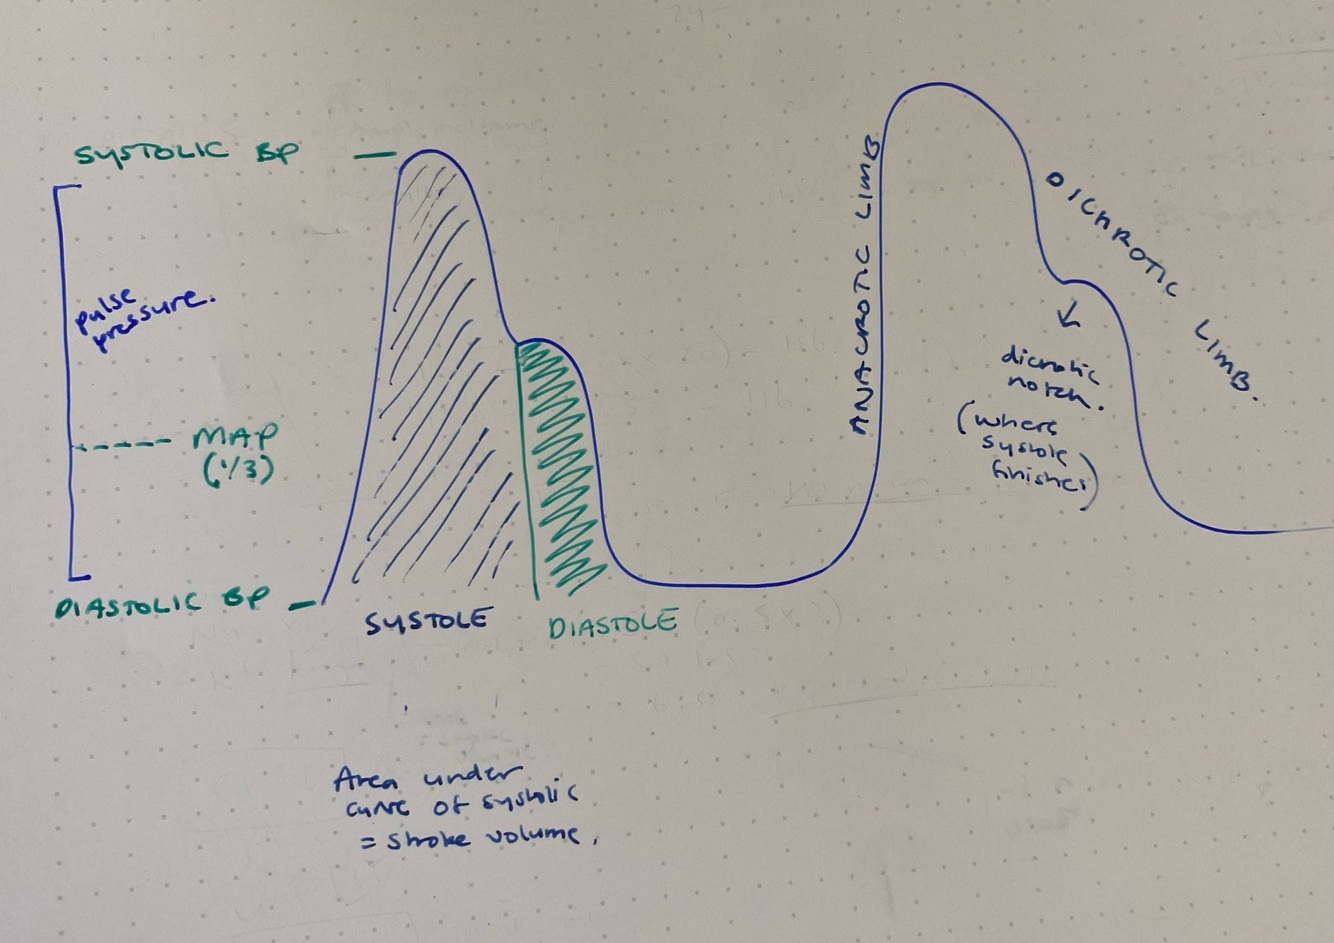 SYSTOLIC BP
pulse
pressure.
MAP
(1/3)
DIASTOLIC BP
SYSTOLE
DIASTOLE
Area under
curve of systolic
= stroke volume.
ANACROTIC LIMB
DICHROTIC LIMB.
dicrotic
notch.
(where
systole
finishes)